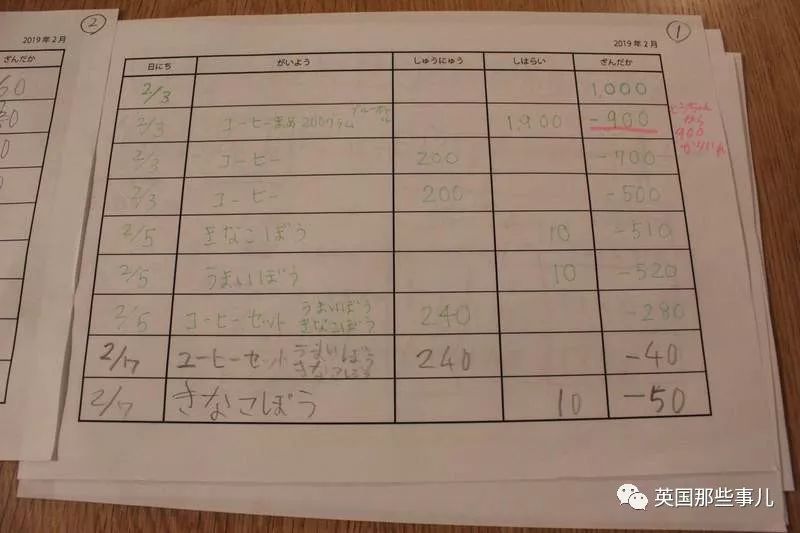 2019年2月
②
ざんだか
①
2019年2月
日にち がいよう しゅうにゅう しはらい ざんだか
2/3 1,000
2/3 コーヒーまめ200グラム ブルーボトル 1,900 -900
とうちゃん
から
900
かりいれ
2/3 コーヒー 200 -700
2/3 コーヒー 200 -500
2/5 きなこぼう 10 -510
2/5 うまいぼう 10 -520
2/5 コーヒーセット うまいぼう きなこぼう 240 -280
2/7 コーヒーセット うまいぼう きなこぼう 240 -40
2/7 きなこぼう 10 -50
英国那些事儿